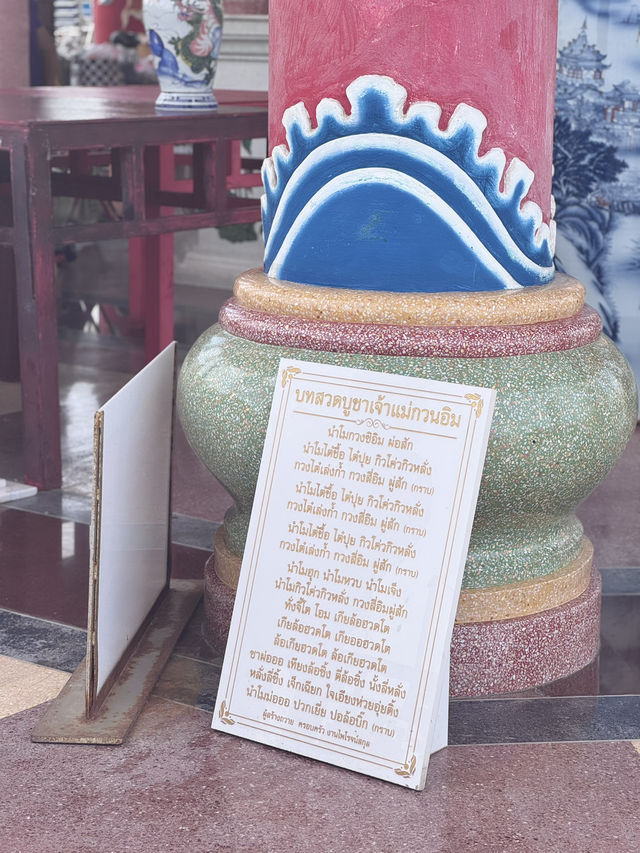 บทสวดบูชาเจ้าแม่กวนอิม
นำโมกวงซิอิม ผ่อสัก
นำโมไต๋ซื้อ ไต๋ปุย กิวโค่วกิวหลั่ง
กวงไต๋เล่งก้ำ กวงสี่อิม ผู่สัก (กราบ)
นำโมไต๋ซื้อ ไต๋ปุย กิวโค่วกิวหลั่ง
กวงไต๋เล่งก้ำ กวงสี่อิม ผู่สัก (กราบ)
นำโมไต๋ซื้อ ไต๋ปุย กิวโค่วกิวหลั่ง
กวงไต๋เล่งก้ำ กวงสี่อิม ผู่สัก (กราบ)
นำโมฮุก นำโมหวบ นำโมเจ็ง
นำโมกิวโค่วกิวหลั่ง กวงสี่อิมผู่สัก
ทั่งจี้โต โอม เกียล้อฮวดโต
เกียล้อฮวดโต เกียออฮวดโต
ล้อเกียฮวดโต ล้อเกียฮวดโต
ซาผ่อออ เทียงล้อซิ้ง ตี่ล้อซิ้ง นั้งลี่หลั่ง
หลั่งลี่ซิ้ง เจ็กเฉียก ใจเอียงห่วยอุ่ยติ๊ง
นำโมม่อออ ปวกเยี่ย ปอล้อบิ๊ก (กราบ)
ผู้สร้างถวาย ครอบครัว งานไพโรจน์สกุล